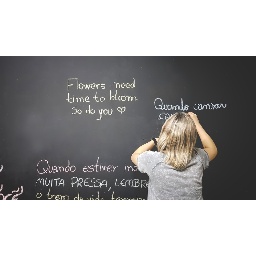 Flowers need
time to bloom
so do you ♡
Quando cansar
Quando estiver
MUITA PRESSA, LEMBR
o trem da vida